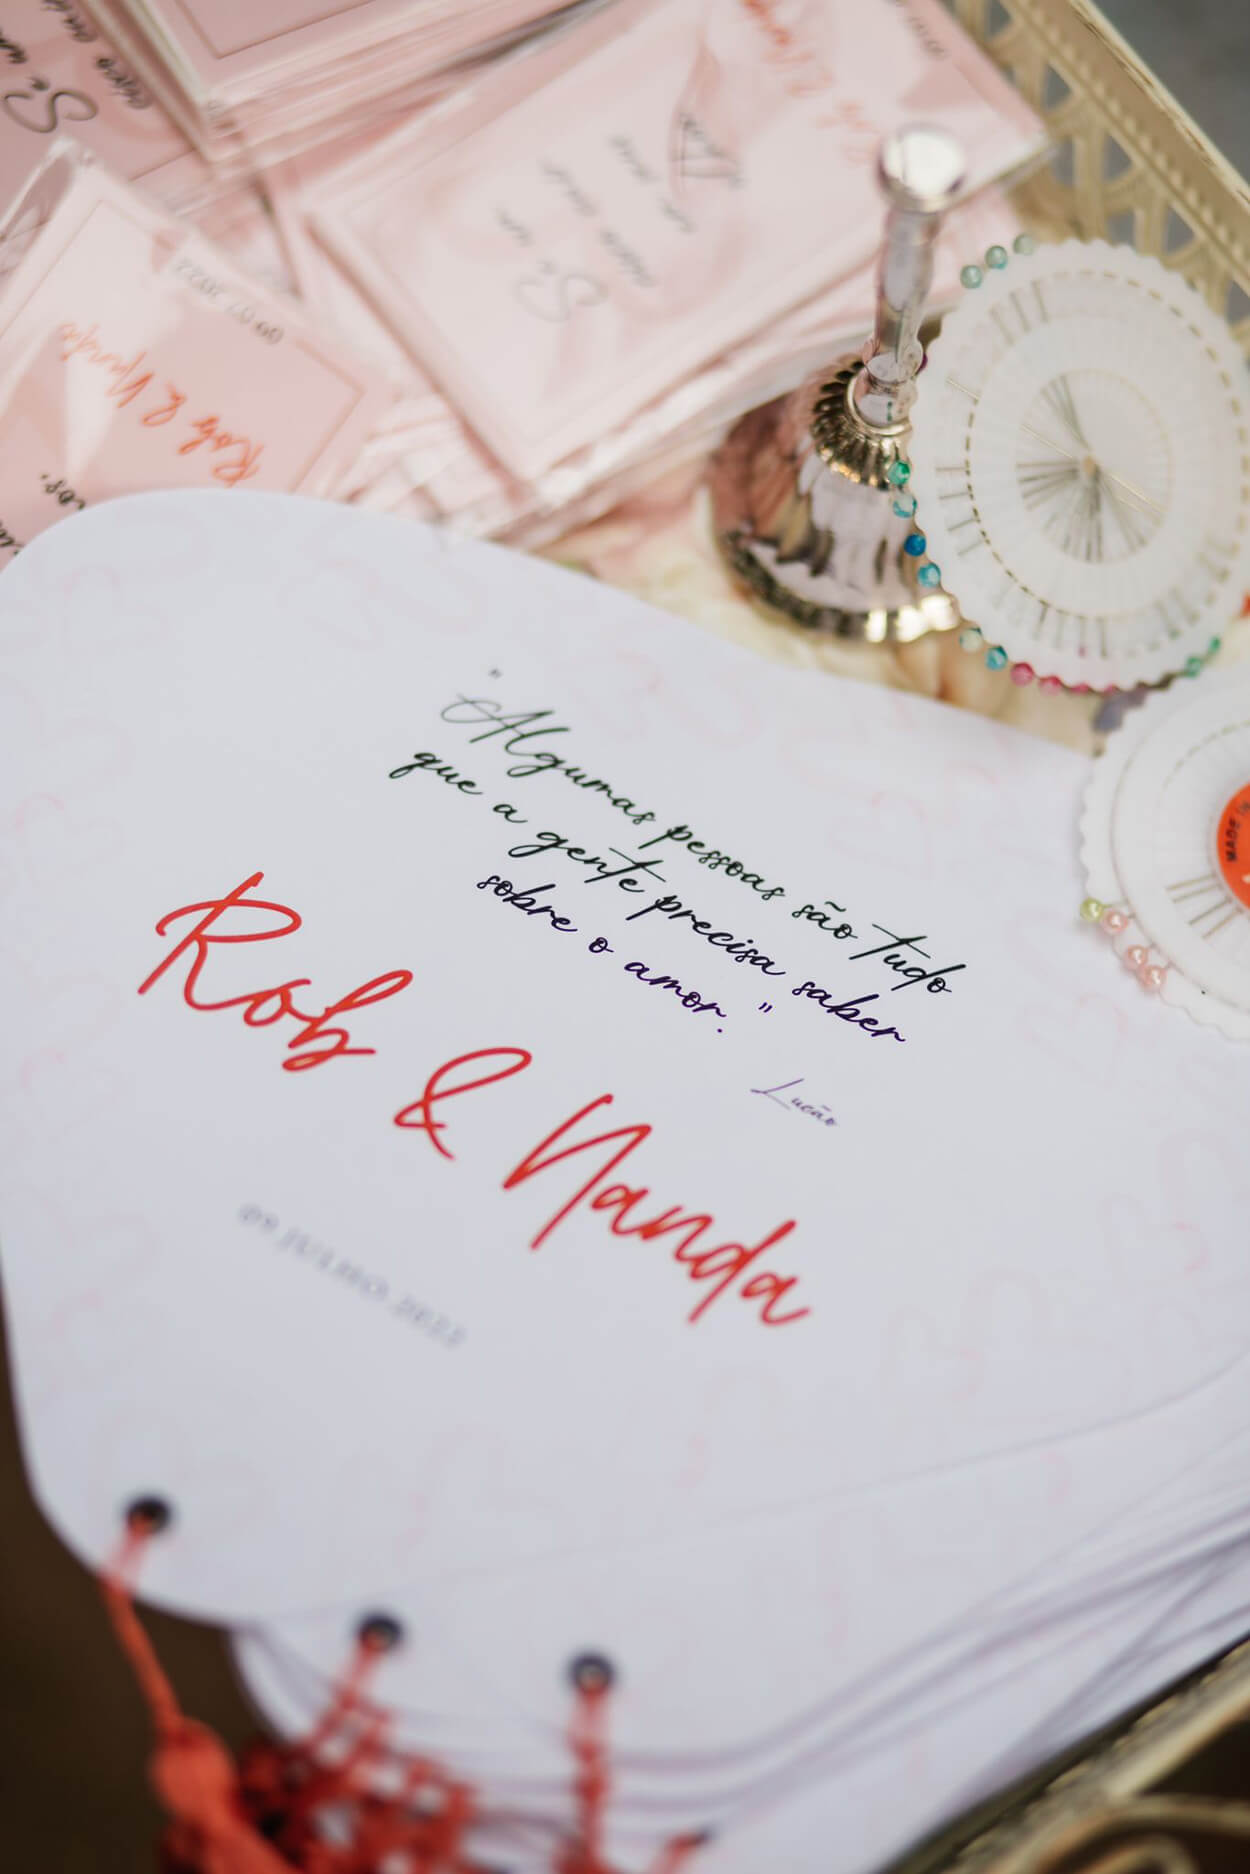 "Algumas pessoas são tudo
que a gente precisa saber
sobre o amor."
Lucão
Rob & Nanda
09.JULHO.2022
Rob & Nanda
09.07.2022
Se um
MADE